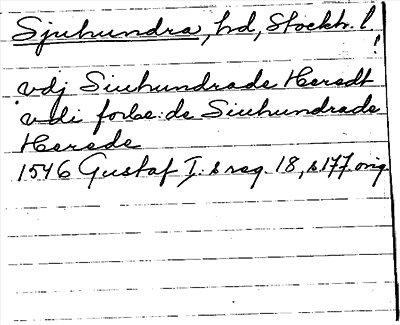 Sjuhundra, hd, Stockh. l.
vdj Siuhundrade Heredt
vdi forbe:de Siuhundrade
Herede
1546 Gustaf I:s reg. 18, s 177. orig.